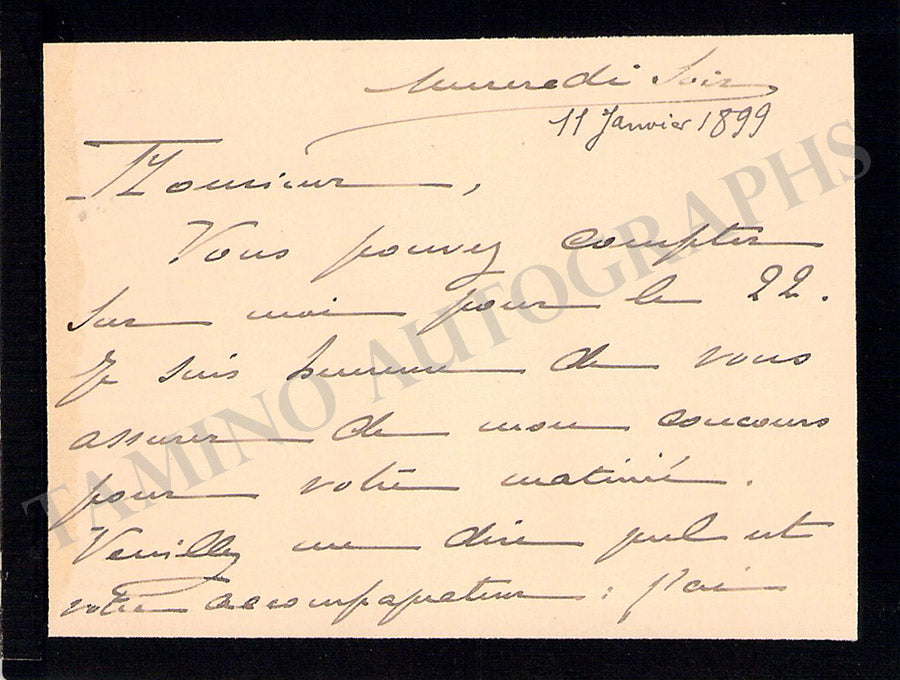 Mercredi Soir
11 Janvier 1899
Monsieur,
Vous pouvez compter
sur moi pour le 22.
Je suis heureuse de vous
assurer de mon concours
pour votre matinée.
Veuillez me dire quel est
votre accompagnateur : j'ai
TAMINO AUTOGRAPHS